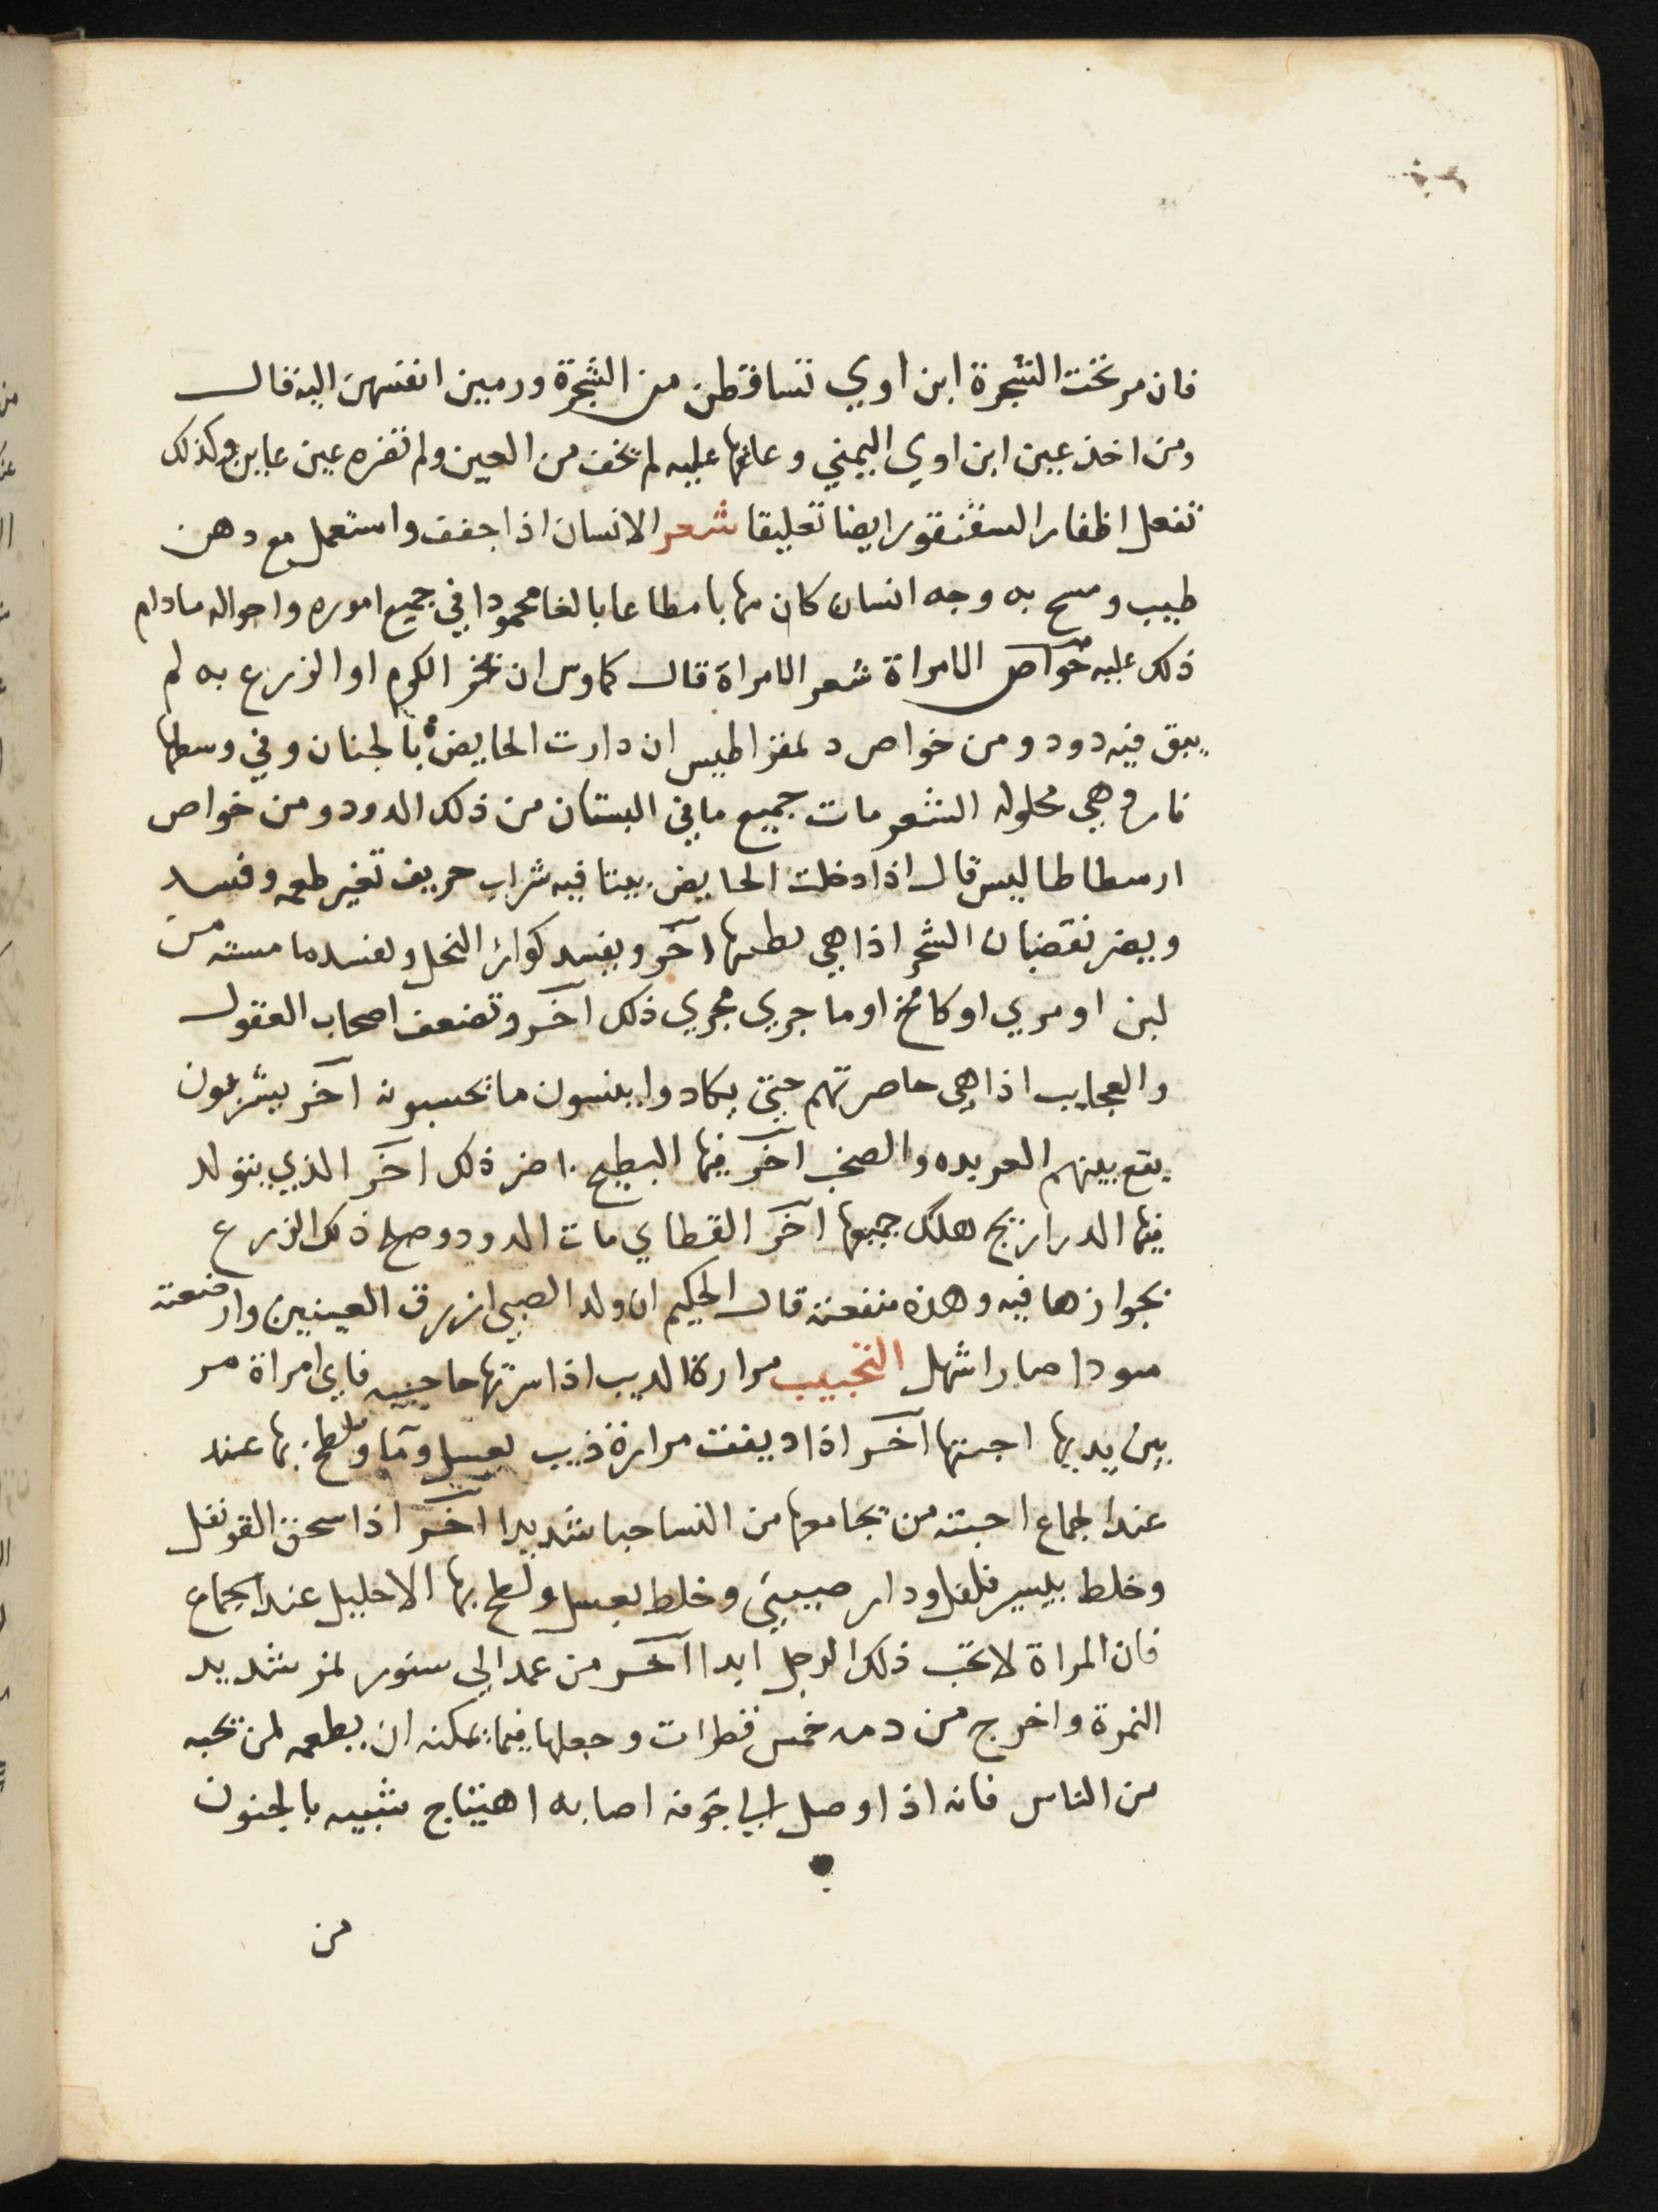 فان مر تحت الشجرة ابن اوي تساقطن من الشجرة ورمين انفسهن اليه قال
ومن اخذ عين ابن اوي اليمني وعلقها عليه لم يخف من العين ولم تضره عين عاين وكذلك
تفعل اظفار السقنقور ايضا تعليقا شعر الانسان اذا جفف واستعمل مع دهن
طيب ومسح به وجه انسان كان مهابا مطاعا بالغا محمودا في جميع اموره واحواله مادام
ذلك عليه خواص الامراة شعر الامراة قال كماوس ان بخر الكرم او الزرع به لم
يبق فيه دود ومن خواص دلمقراطيس ان دارت الحايض بالجنان وفي وسطها
نار وهي محلوله الشعر مات جميع ما في البستان من ذلك الدود ومن خواص
ارسطاطاليس قال اذا دخلت الحايض بيتا فيه شراب حريف تغير طعمه وفسد
ويضر نقضبان الشجر اذا هي آخر ويفسد كوائر النحل ويفسد ما مسته من
لبن او مري او كامخ او ما جري مجري ذلك آخر وتضعف اصحاب العقول
والعجايب اذا هي حاصرتهم حتى يكادوا ينسون ما يحسبونه آخر يشرعون
يقع بينهم العربده والصخب آخر فيها البطيخ اضر ذلك اخر الذي يتولد
فيها الدراريح هلك جميعها آخر القطاي مات الدود وصلح ذلك الزرع
بجوازها فيه وهذه منفعته قال الحكيم ان ولد الصبي ازرق العينين وارضعته
سودا صار اشهل التحبيب مرارة الديب اذا حاجبيه فاي امراة مر
بين يديها احبتها آخر اذا اديفت مرارة ذيب بعسل وما ولطخ بها عند
عند الجماع احبته من يجامعها من النسا حبا شديدا آخر اذا سحق القرنفل
وخلط بيسير فلفل ودار صيني وخلط بعسل ولطخ بها الاحليل عند الجماع
فان المراة لا تحب ذلك الرجل ابدا آخر من عمد الي سنور نمر شديد
النمرة واخرج من دمه خمس قطرات وجعلها فيما يمكنه ان يطعمه لمن يحبه
من الناس فانه اذا وصل الي جوفه اصابه اهتياج شبيه بالجنون
من